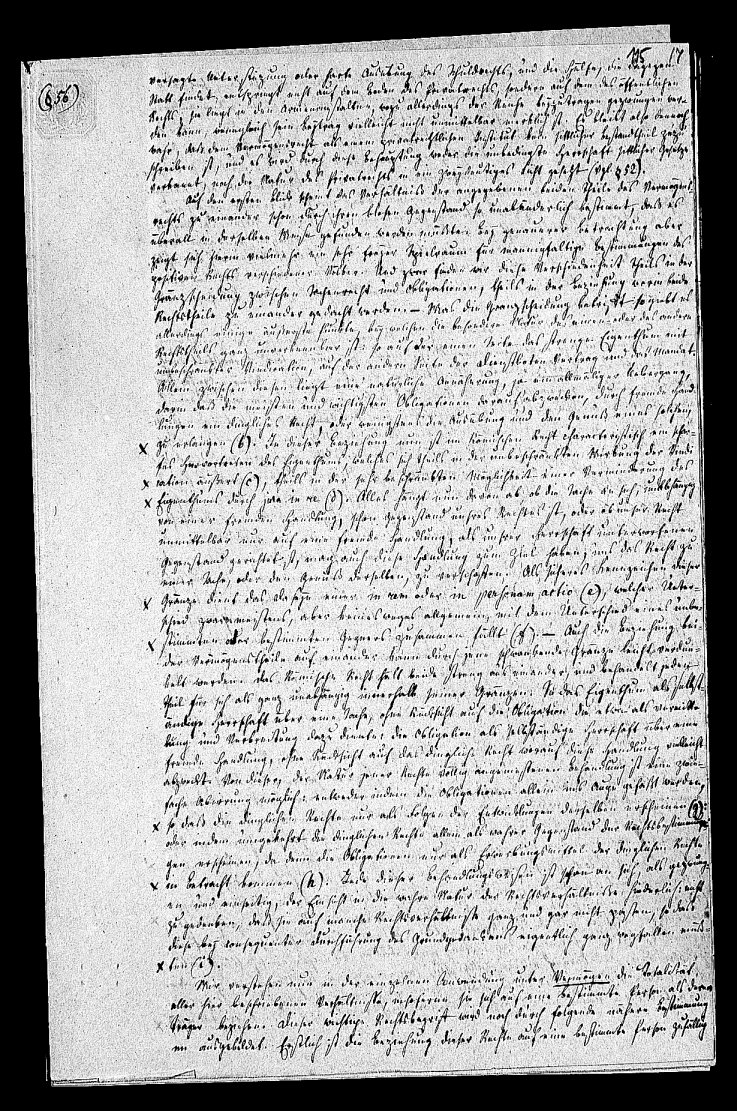 115 17
(§56)
versagte Unterstützung oder harte Ausübung des Schuldrechts, und die Hülfe, die dagegen
Statt findet, entspringt nicht auf dem Boden des Privatrechts, sondern auf dem des öffentlichen
Rechts; sie liegt in den Armenanstalten, wozu allerdings der Reiche beyzutragen gezwungen wer-
den kann, wenngleich sein Beytrag vielleicht nicht unmittelbar merklich ist. Es bleibt also dennoch
wahr, daß dem Vermögensrecht als einem privatrechtlichen Institut kein sittlicher Bestandtheil zuzu-
schreiben ist, und es wird durch diese Behauptung weder die unbedingte Herrschaft sittlicher Gesetze
verkannt, noch die Natur des Privatrechts in ein zweydeutiges Licht gesetzt (vgl. §52).
Auf den ersten Blick scheint das Verhältniß der angegebenen beiden Theile des Vermögens-
rechts zu einander schon durch ihren bloßen Gegenstand so unabänderlich bestimmt, daß es
überall in derselben Weise gefunden werden müßte. Bey genauerer Betrachtung aber
zeigt sich hierin vielmehr ein sehr freyer Spielraum für mannigfaltige Bestimmungen des
positiven Rechts verschiedener Völker. Und zwar finden wir diese Verschiedenheit theils in der
Gränzscheidung zwischen Sachenrecht und Obligationen, theils in der Beziehung worin beide
Rechtstheile zu einander gedacht werden. — Was die Gränzscheidung betrifft, so giebt es
allerdings einige äußerste Punkte, bey welchen die besondere Natur des einen oder des andern
Rechtstheils ganz unverkennbar ist: so auf der einen Seite das strenge Eigenthum mit
unbeschränkter Vindication, auf der andern Seite der Dienstboten-Vertrag und das Mandat.
Allein zwischen diesen liegt eine natürliche Annäherung, ja ein allmäliger Uebergang,
darin daß die meisten und wichtigsten Obligationen darauf abzwecken, durch fremde Hand-
lungen ein dingliches Recht, oder wenigstens die Ausübung und den Genuß eines solchen,
x zu erlangen (b). In dieser Beziehung nun ist im Römischen Recht charakteristisch ein schar-
fes Hervortreten des Eigenthums, welches sich theils in der unbeschränkten Wirkung der Vindi-
x cation äußert (c), theils in der sehr beschränkten Möglichkeit einer Verminderung des
x Eigenthums durch jura in re (d). Alles hängt nun davon ab ob die Sache an sich, unabhängig
von einer fremden Handlung, schon Gegenstand unsres Rechts ist, oder ob unser Recht
unmittelbar nur auf eine fremde Handlung, als unsrer Herrschaft unterworfenen
Gegenstand gerichtet ist, mag auch diese Handlung zum Ziel haben, uns das Recht zu
einer Sache, oder den Genuß derselben, zu verschaffen. Als sicheres Kennzeichen dieser
x Gränze dient das Daseyn einer in rem oder in personam actio (e), welcher Unter-
schied zwar meistens, aber keinesweges allgemein, mit dem Unterschied eines unbe-
x stimmten oder bestimmten Gegners zusammen fällt (f). — Auch die Beziehung bei-
der Vermögenstheile auf einander kann durch jene schwankende Gränze leicht verdun-
kelt werden. Das Römische Recht hält beide streng aus einander, und behandelt jeden
Theil für sich als ganz unabhängig innerhalb seiner Gränzen. So das Eigenthum als selbst-
ändige Herrschaft über eine Sache, ohne Rücksicht auf die Obligation die etwa als Vermitt-
lung und Vorbereitung dazu diente: die Obligation als selbständige Herrschaft über eine
fremde Handlung, ohne Rücksicht auf das dingliche Recht worauf diese Handlung vielleicht
abzweckt. Von dieser, der Natur jener Rechte völlig angemessenen Behandlung ist eine zwie-
fache Abirrung möglich: entweder indem die Obligationen allein ins Auge gefaßt werden,
x so daß die dinglichen Rechte nur als Folgen oder Entwicklungen derselben erscheinen (g):
oder indem umgekehrt die dinglichen Rechte allein als wahrer Gegenstand der Rechtsbestimmun-
gen erscheinen, da denn die Obligationen nur als Erwerbungsmittel der dinglichen Rechte
x in Betracht kommen (h). Jede dieser Behandlungsweisen ist schon an sich, als gezwung-
en und einseitig, der Einsicht in die wahre Natur der Rechtsverhältnisse hinderlich: nicht
zu gedenken, daß sie auf manche Rechtsverhältnisse ganz und gar nicht passen, so daß
diese bey consequenter Durchführung des Grundgedankens eigentlich ganz wegfallen müß-
x ten (i).
Wir verstehen nun in der einzelnen Anwendung unter Vermögen die Totalität
aller hier beschriebenen Verhältnisse, insofern sie sich auf eine bestimmte Person als deren
Träger beziehen. Dieser wichtige Rechtsbegriff wird noch durch folgende nähere Bestimmung-
en ausgebildet. Erstlich ist die Beziehung dieser Rechte auf eine bestimmte Person zufällig